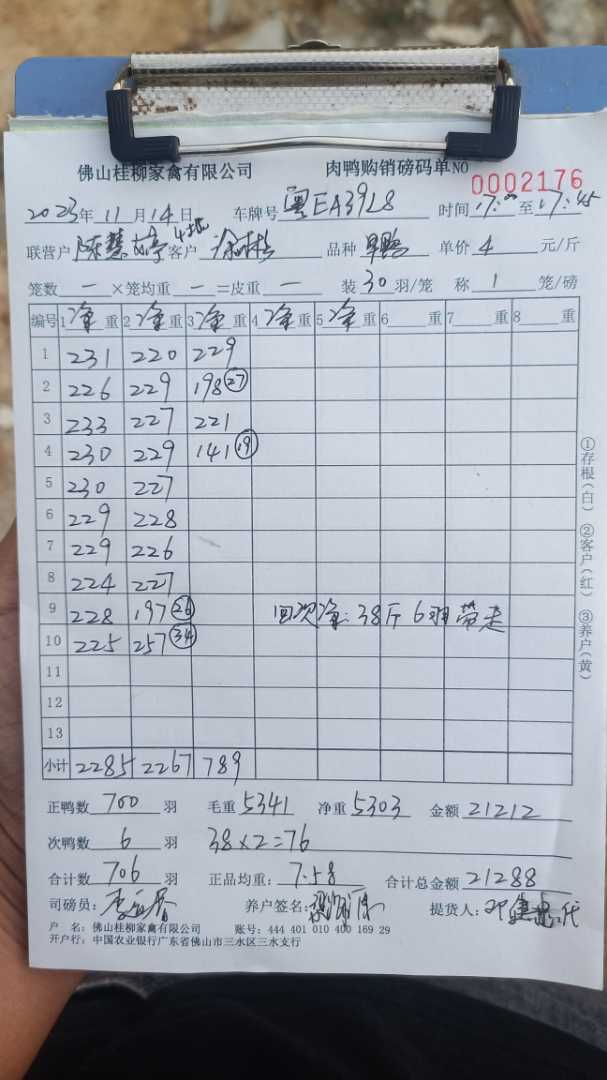 佛山桂柳家禽有限公司 肉鸭购销磅码单 NO 0002176
2023年 11月 14日 车牌号 粤EA39L8 时间 17:00 至 17:45
联营户 陈慧 客户 品种 早鸭 单价 4 元/斤
笼数 一 ×笼均重 一 =皮重 一 装 30 羽/笼 称 1 笼/磅
编号 1 净 重 2 净 重 3 净 重 4 净 重 5 净 重 6 重 7 重 8 重
1 231 220 229
2 226 229 198 27
3 233 227 221
4 230 229 141 19
5 230 227
6 229 228
7 229 226
8 224 227
9 228 197 26 回次净:38斤 6羽 带走
10 225 257 34
11
12
13
小计 2285 2267 789
正鸭数 700 羽 毛重 5341 净重 5303 金额 21212
次鸭数 6 羽 38×2=76
合计数 706 羽 正品均重: 7.58 合计总金额 21288
司磅员: 养户签名: 提货人:
户 名: 佛山桂柳家禽有限公司 账号: 444 401 010 400 169 29
开户行: 中国农业银行广东省佛山市三水区三水支行
①存根(白) ②客户(红) ③养户(黄)